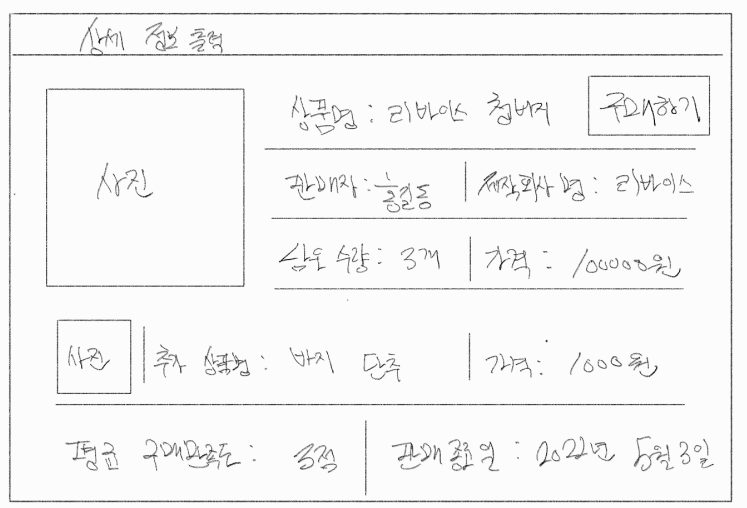 상세 정보 출력
상품명 : 리바이스 청바지 구매하기
사진
판매자 : 홍길동 제작회사 명 : 리바이스
남은 수량 : 3개 가격 : 100000원
사진 추가 상품명 : 바지 단추 가격 : 1000원
평균 구매만족도 : 3점 판매 종료일 : 2022년 5월 3일